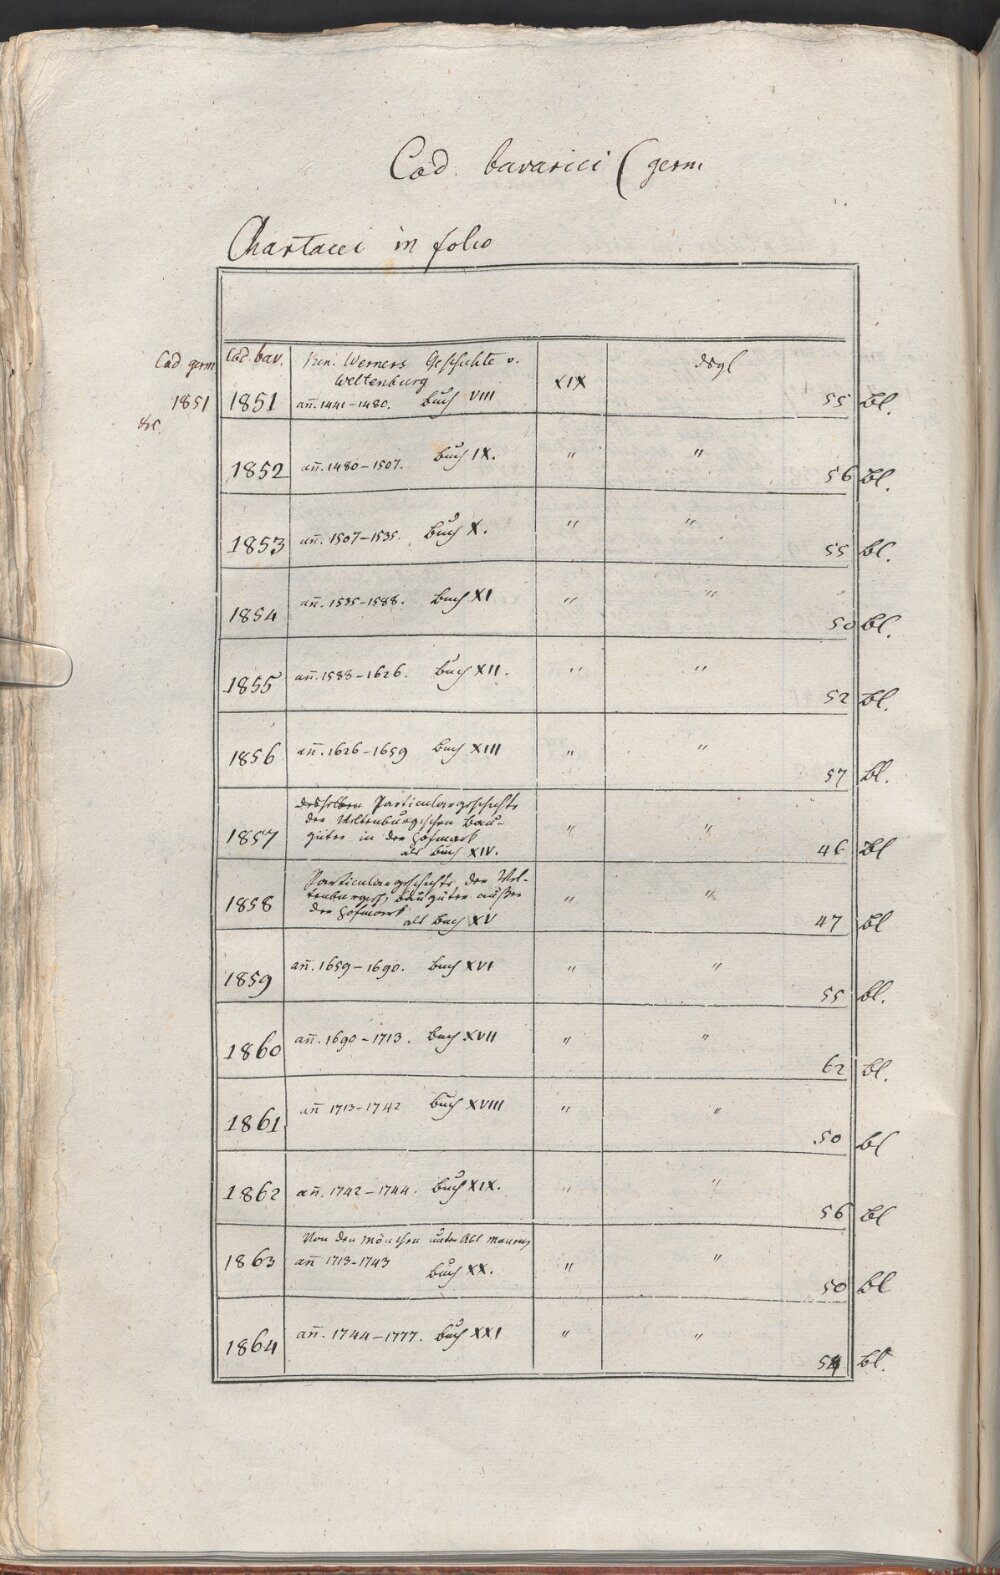 Cod. bavarici (germ
Chartacei in folio
Cod. germ
1851
&c.
Cod. bav.
1851 Ben. Werners Geschichte v.
Weltenburg
añ. 1441–1480. Buch VIII XIX dsgl 55 Bl.
1852 añ. 1480–1507. Buch IX. " " 56 Bl.
1853 añ. 1507–1535. Buch X. " " 55 bl.
1854 añ. 1535–1588. Buch XI " " 50 Bl.
1855 añ. 1588–1626. Buch XII. " " 52 Bl.
1856 añ. 1626–1659 Buch XIII " " 57 bl.
1857 desselben Particulargeschichte
der Weltenburgischen Bau-
güter in der Hofmark
als Buch XIV. " " 46 Bl
1858 Particulargeschichte der Wel-
tenburgisch. Baugüter außer
der Hofmark
als Buch XV " " 47 bl
1859 añ. 1659–1690. Buch XVI " " 55 bl.
1860 añ. 1690–1713. Buch XVII " " 62 bl.
1861 añ 1713–1742 Buch XVIII " " 50 bl
1862 añ. 1742–1744. Buch XIX. " " 56 bl
1863 Von den Mönchen unter Abt Maurus
añ 1713–1743
Buch XX. " " 50 bl
1864 añ. 1744–1777. Buch XXI " " 54 bl.